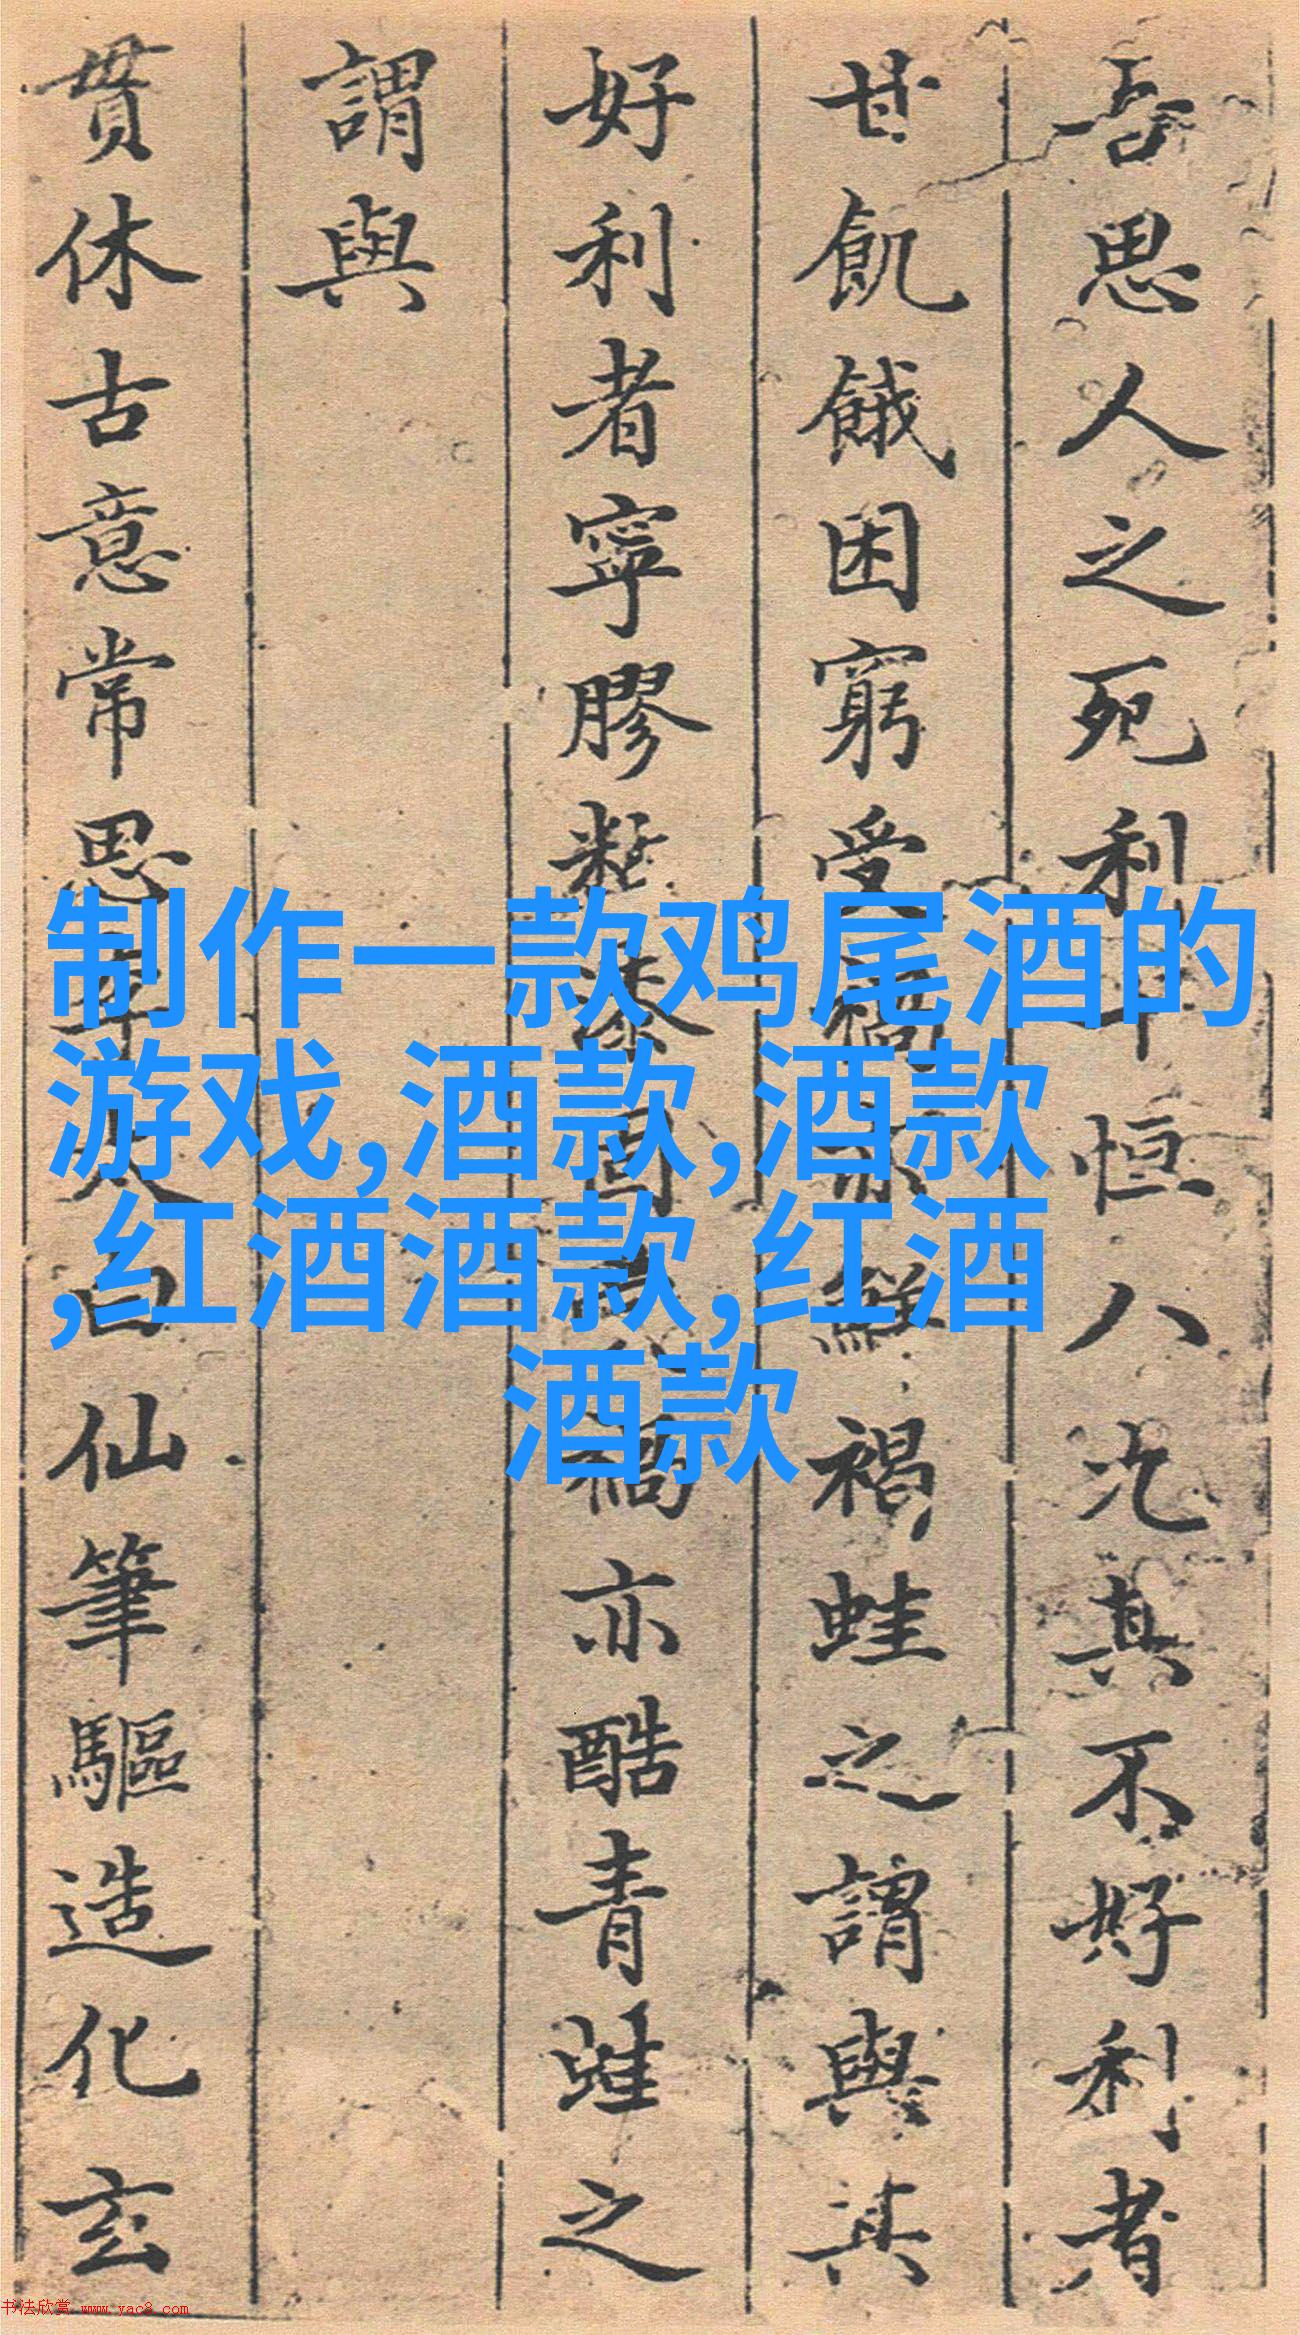 吾思人之死利十恒八九其不好利者
甘飢餓困窮受禍亦鮮褐蛙之謂與其
好利者寧膠黏漆固其禍亦酷青蛙之
謂與
貫休古意常思李太白仙筆驅造化玄
制作一款鸡尾酒的
游戏,酒款,酒款
,红酒酒款,红酒
酒款
书法欣赏 www.yac8.com